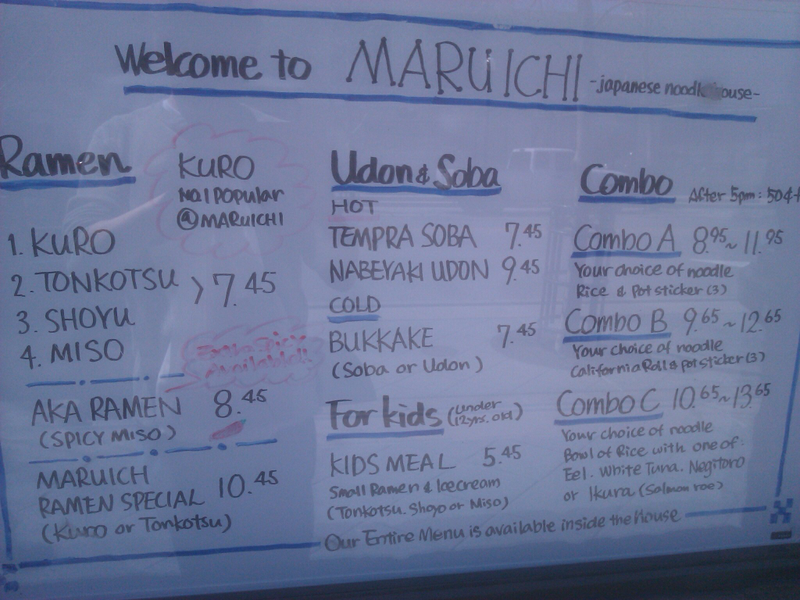 Welcome to MARUICHI -japanese noodle house-
Ramen
KURO
No.1 Popular
@MARUICHI
1. KURO
2. TONKOTSU > 7.45
3. SHOYU
4. MISO
Extra Spicy
available!!
AKA RAMEN 8.45
(SPICY MISO)
MARUICH
RAMEN SPECIAL 10.45
(Kuro or Tonkotsu)
Udon & Soba
HOT
TEMPRA SOBA 7.45
NABEYAKI UDON 9.45
COLD
BUKKAKE 7.45
(Soba or Udon)
For kids (under
12yrs. old)
KIDS MEAL 5.45
Small Ramen & Icecream
(Tonkotsu. Shoyo or Miso)
Combo After 5pm: 50¢+
Combo A 8.95~11.95
Your choice of noodle
Rice & Potsticker (3)
Combo B 9.65~12.65
Your choice of noodle
California Roll & potsticker (3)
Combo C 10.65~13.65
Your choice of noodle
Bowl of Rice with one of
Eel. White Tuna. Negitoro
or Ikura (Salmon roe)
Our Entire Menu is available inside the House